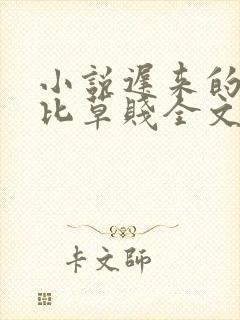 小說遲来的
比草賤全文
卡文師